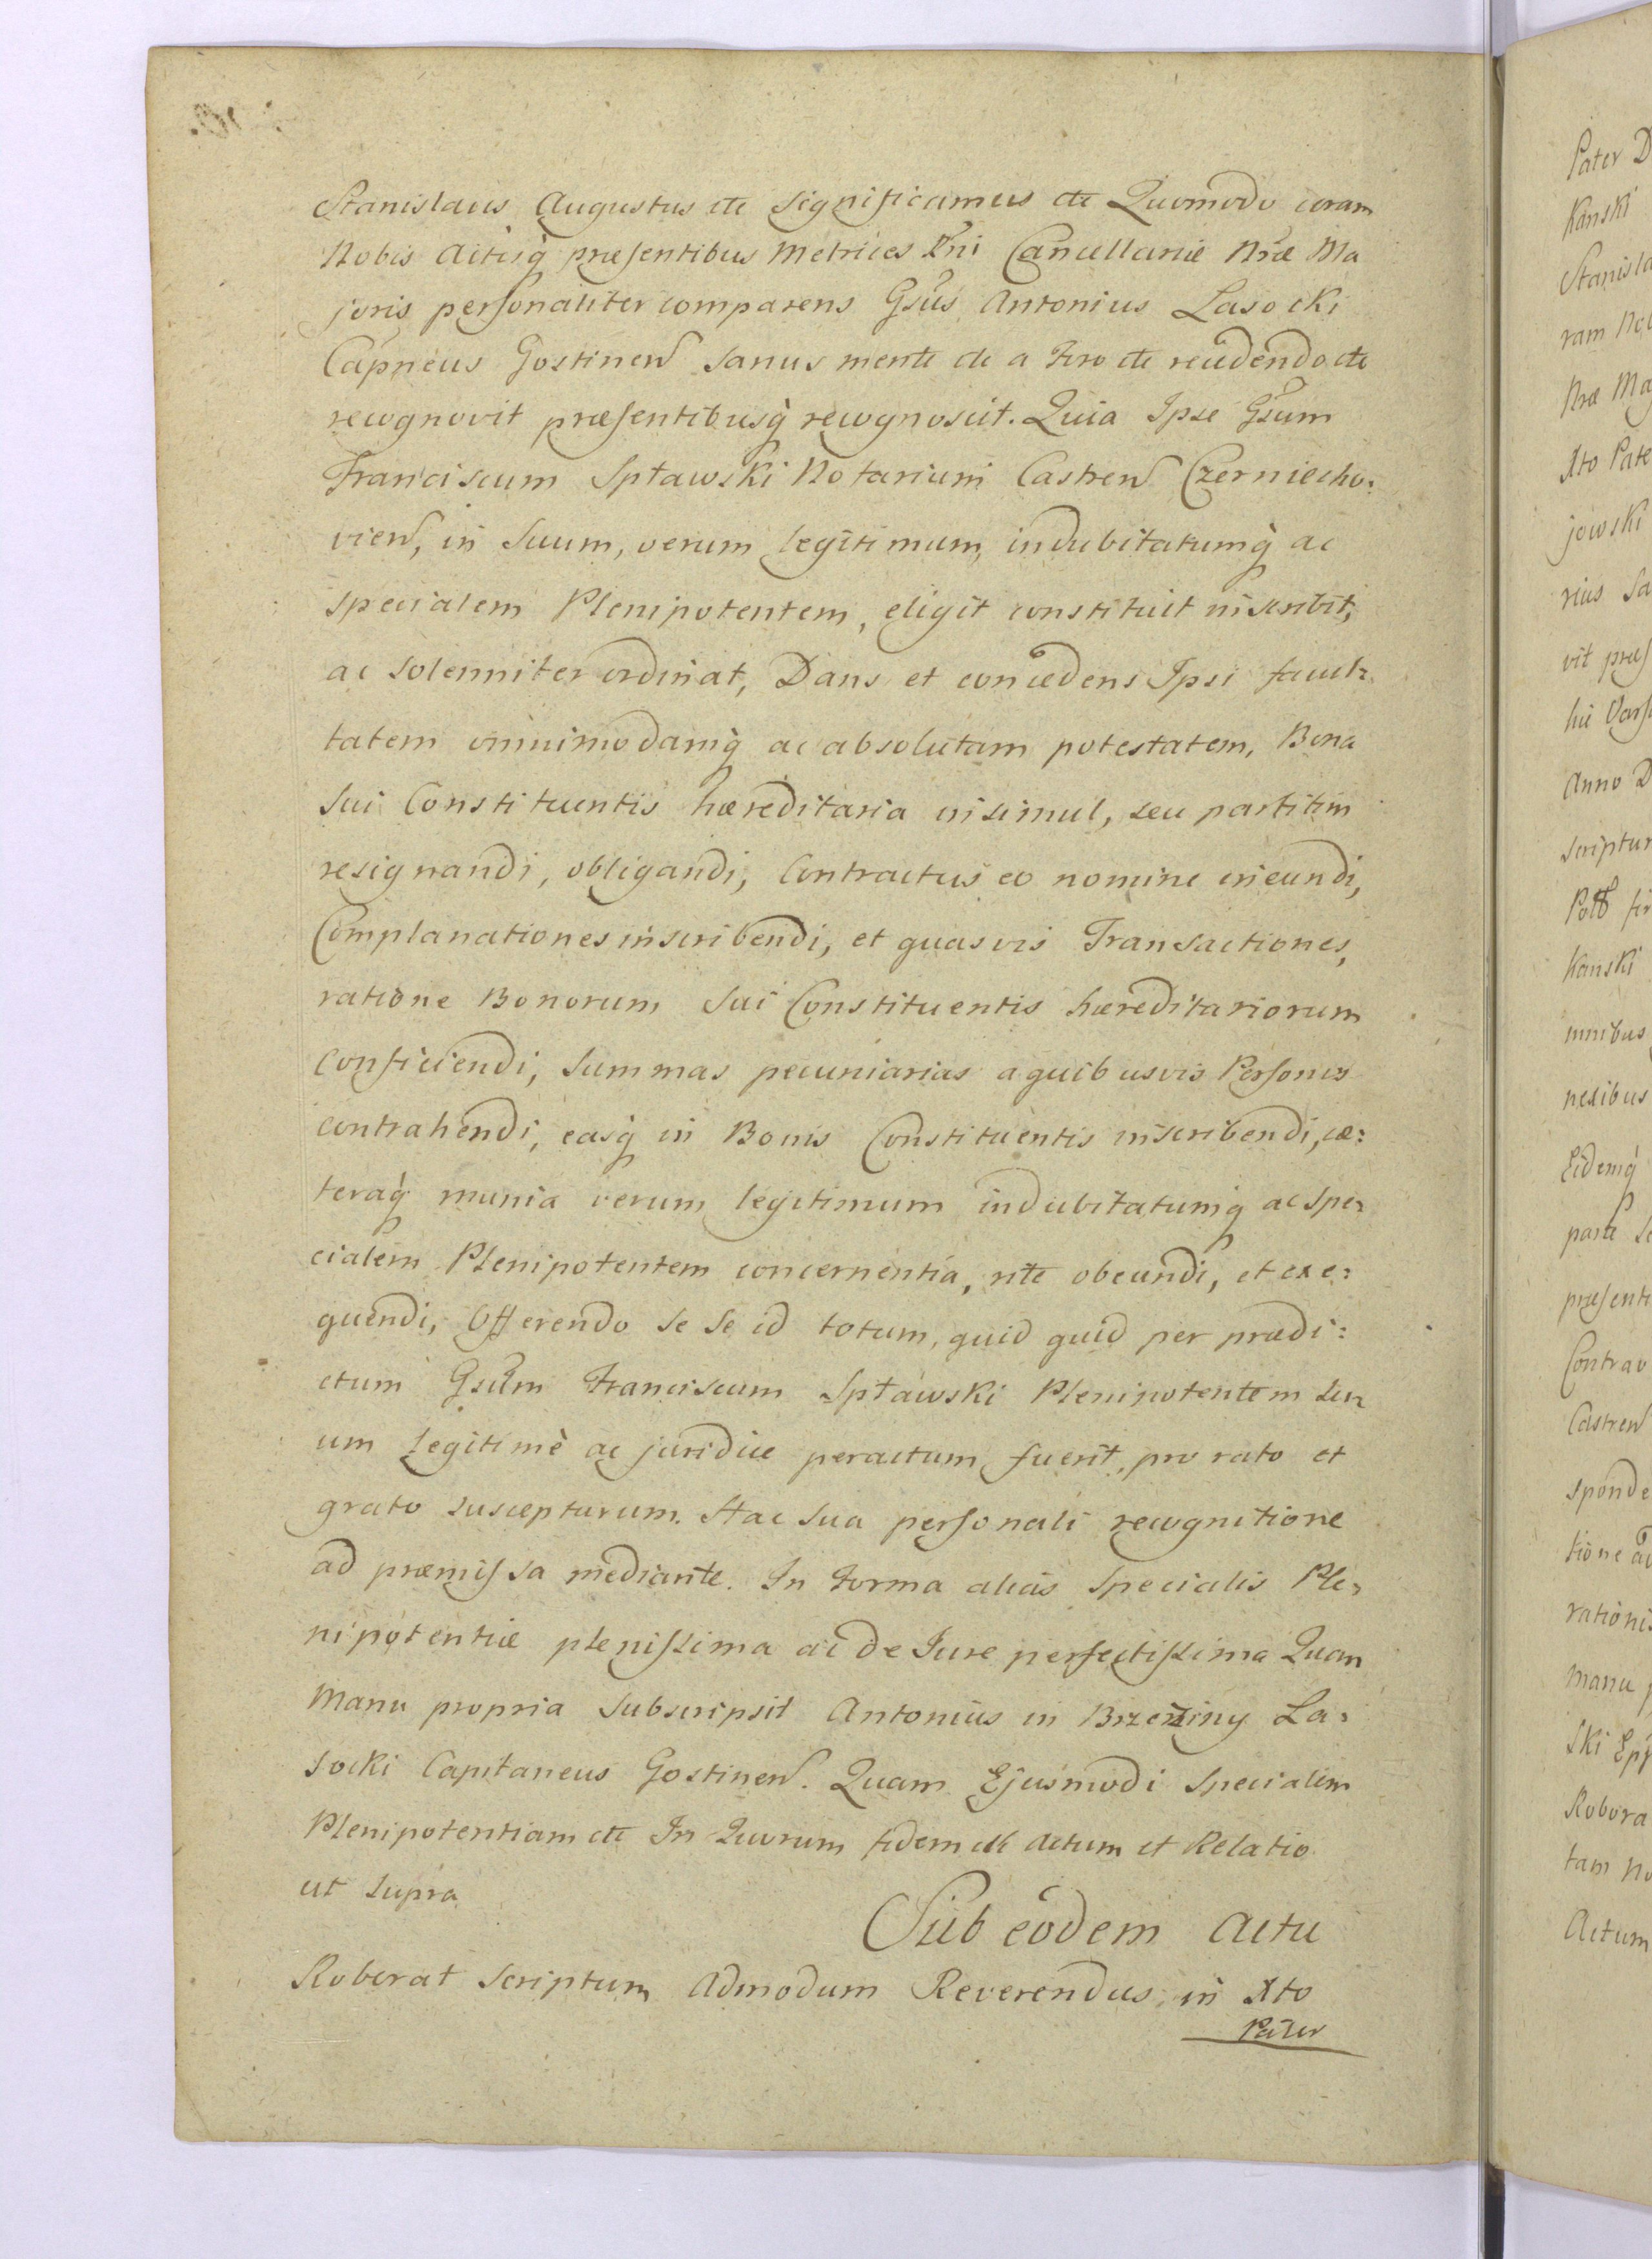 Stanislaus Augustus etc Significamus etc Quomodo coram
Nobis Actisq̀ præsentibus Metrices Rni Cancellariæ Nræ Ma
joris personaliter comparens Gsus Antonius Lasocki
Capneus Gostinen Sanus mente etc a Foro etc recedendo etc
recognovit præsentibusq̀ recognoscit. Quia Ipse Gsum
Franciscum Spławski Notarium Castren Czerniecho:
vien, in Suum, verum legitimum, indubitatumq̀ ac
specialem Plenipotentem, eligit constituit inscribit,
ac solenniter ordinat, Dans et concedens Ipsi facul:
tatem omnimodamq̀ ac absolutam potestatem, Bona
sui Constituentis hæreditaria insimul, seu partitim
resignandi, obligandi, Contractus eo nomine ineundi,
Complanationes inscribendi, et quasvis Transactiones,
ratione Bonorum Sui Constituentis hæreditariorum
conficiendi, Summas pecuniarias a quibusvis Personis
contrahendi, easq̀ in Bonis Constituentis inscribendi, cæ:
teraq̀ munia verum legitimum indubitatumq̀ ac Spe:
cialem Plenipotentem concernentia, rite obeundi, et exe:
quendi, Offerendo se se id totum, quid quid per prædi:
ctum Gsum Franciscum Spławski Plenipotentem Su:
um Legitimè ac juridice peractum fuerit, pro rato et
grato suscepturum. Hac Sua personali recognitione
ad præmissa mediante. In Forma alias Specialis Ple:
nipotentiæ plenissima ac de Jure perfectissima Quam
Manu propria subscripsit Antonius in Brzeziny La:
socki Capitaneus Gostinen. Quam Ejusmodi Specialem
Plenipotentiam etc In Quorum fidem etc Actum et Relatio
ut supra
Sub eodem Actu
Roborat Scriptum Admodum Reverendus in Xto
Pater
Pater D
Kanski
Stanisla
ram No
Nræ Ma
Xto Pate
jowski
rius Sa
vit præs
Anno D
Scriptur
Kanski
mnibus
nexibus
Eidemq̀
parte
præsent
Contrav
Castren
sponde
tione
rationis
Manu
ski Epp
Robora
tam No
Actum